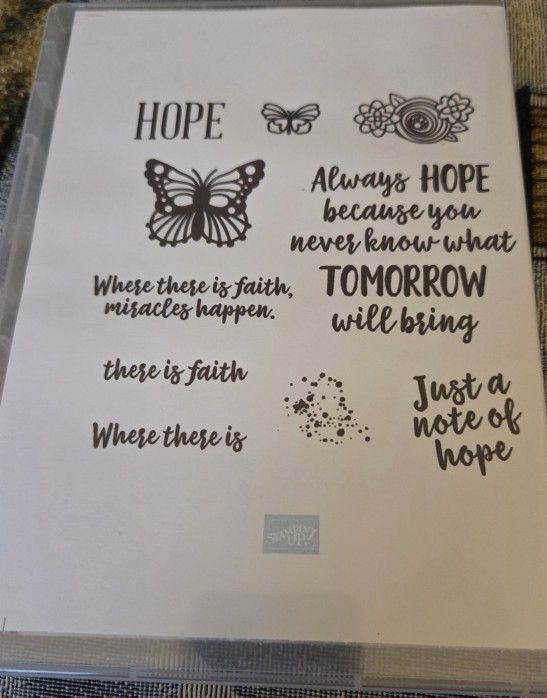 HOPE
Always HOPE
because you
never know what
TOMORROW
will bring
Where there is faith,
miracles happen.
there is faith
Where there is
Just a
note of
hope
STAMPIN'
UP!